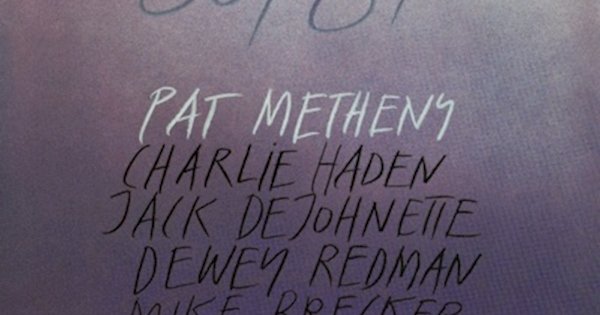 80/81
PAT METHENY
CHARLIE HADEN
JACK DEJOHNETTE
DEWEY REDMAN
MIKE BRECKER